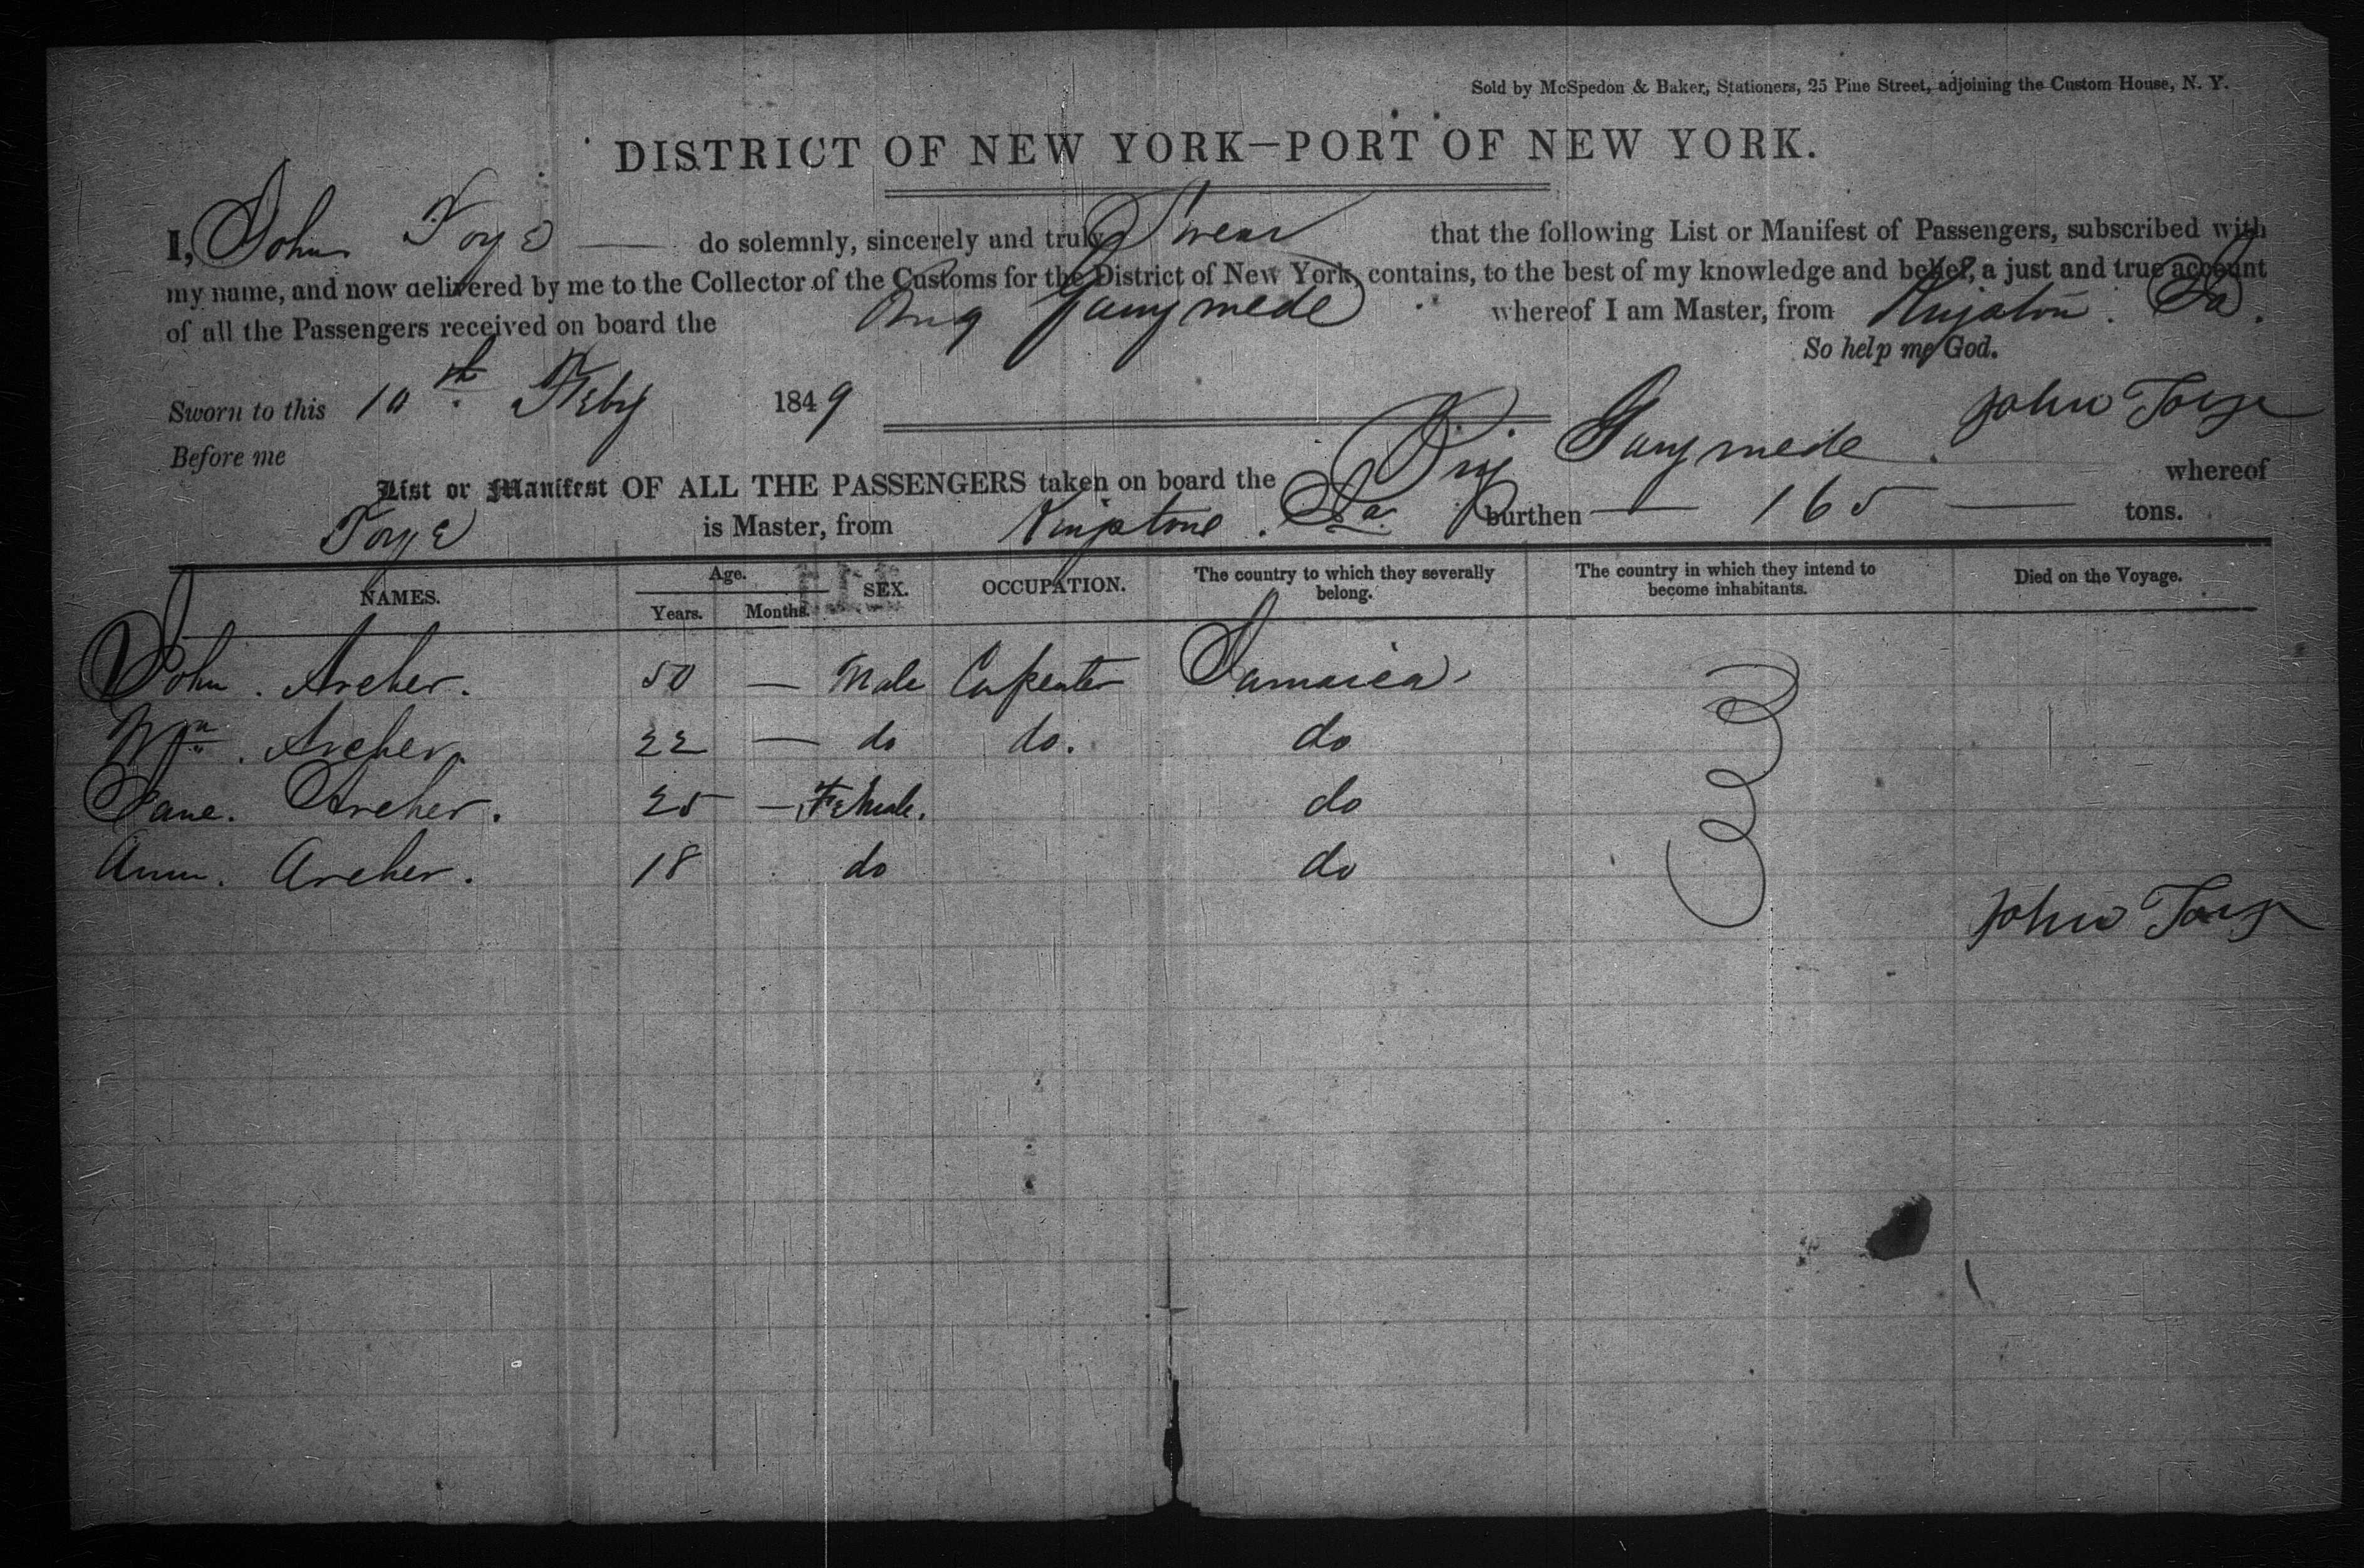 Sold by McSpedon & Baker, Stationers, 25 Pine Street, adjoining the Custom House, N. Y.
DISTRICT OF NEW YORK—PORT OF NEW YORK.
I, John Toye — do solemnly, sincerely and truly Swear that the following List or Manifest of Passengers, subscribed with
my name, and now delivered by me to the Collector of the Customs for the District of New York, contains, to the best of my knowledge and belief, a just and true account
of all the Passengers received on board the Brig Ganymede whereof I am Master, from Kingston. Ja.
So help me God.
Sworn to this 10th Feby 1849
John Toye
Before me
List or Manifest OF ALL THE PASSENGERS taken on board the Brig Ganymede. whereof
Toye is Master, from Kingstone. Ja. burthen — 165 — tons.
NAMES. Age. Years. Months. SEX. OCCUPATION. The country to which they severally belong. The country in which they intend to become inhabitants. Died on the Voyage.
John. Archer. 50 — Male Carpenter Jamaica
Wm. Archer. 22 — do do. do
Jane. Archer. 25 — Female. do
Ann. Archer. 18 do do
John Toye